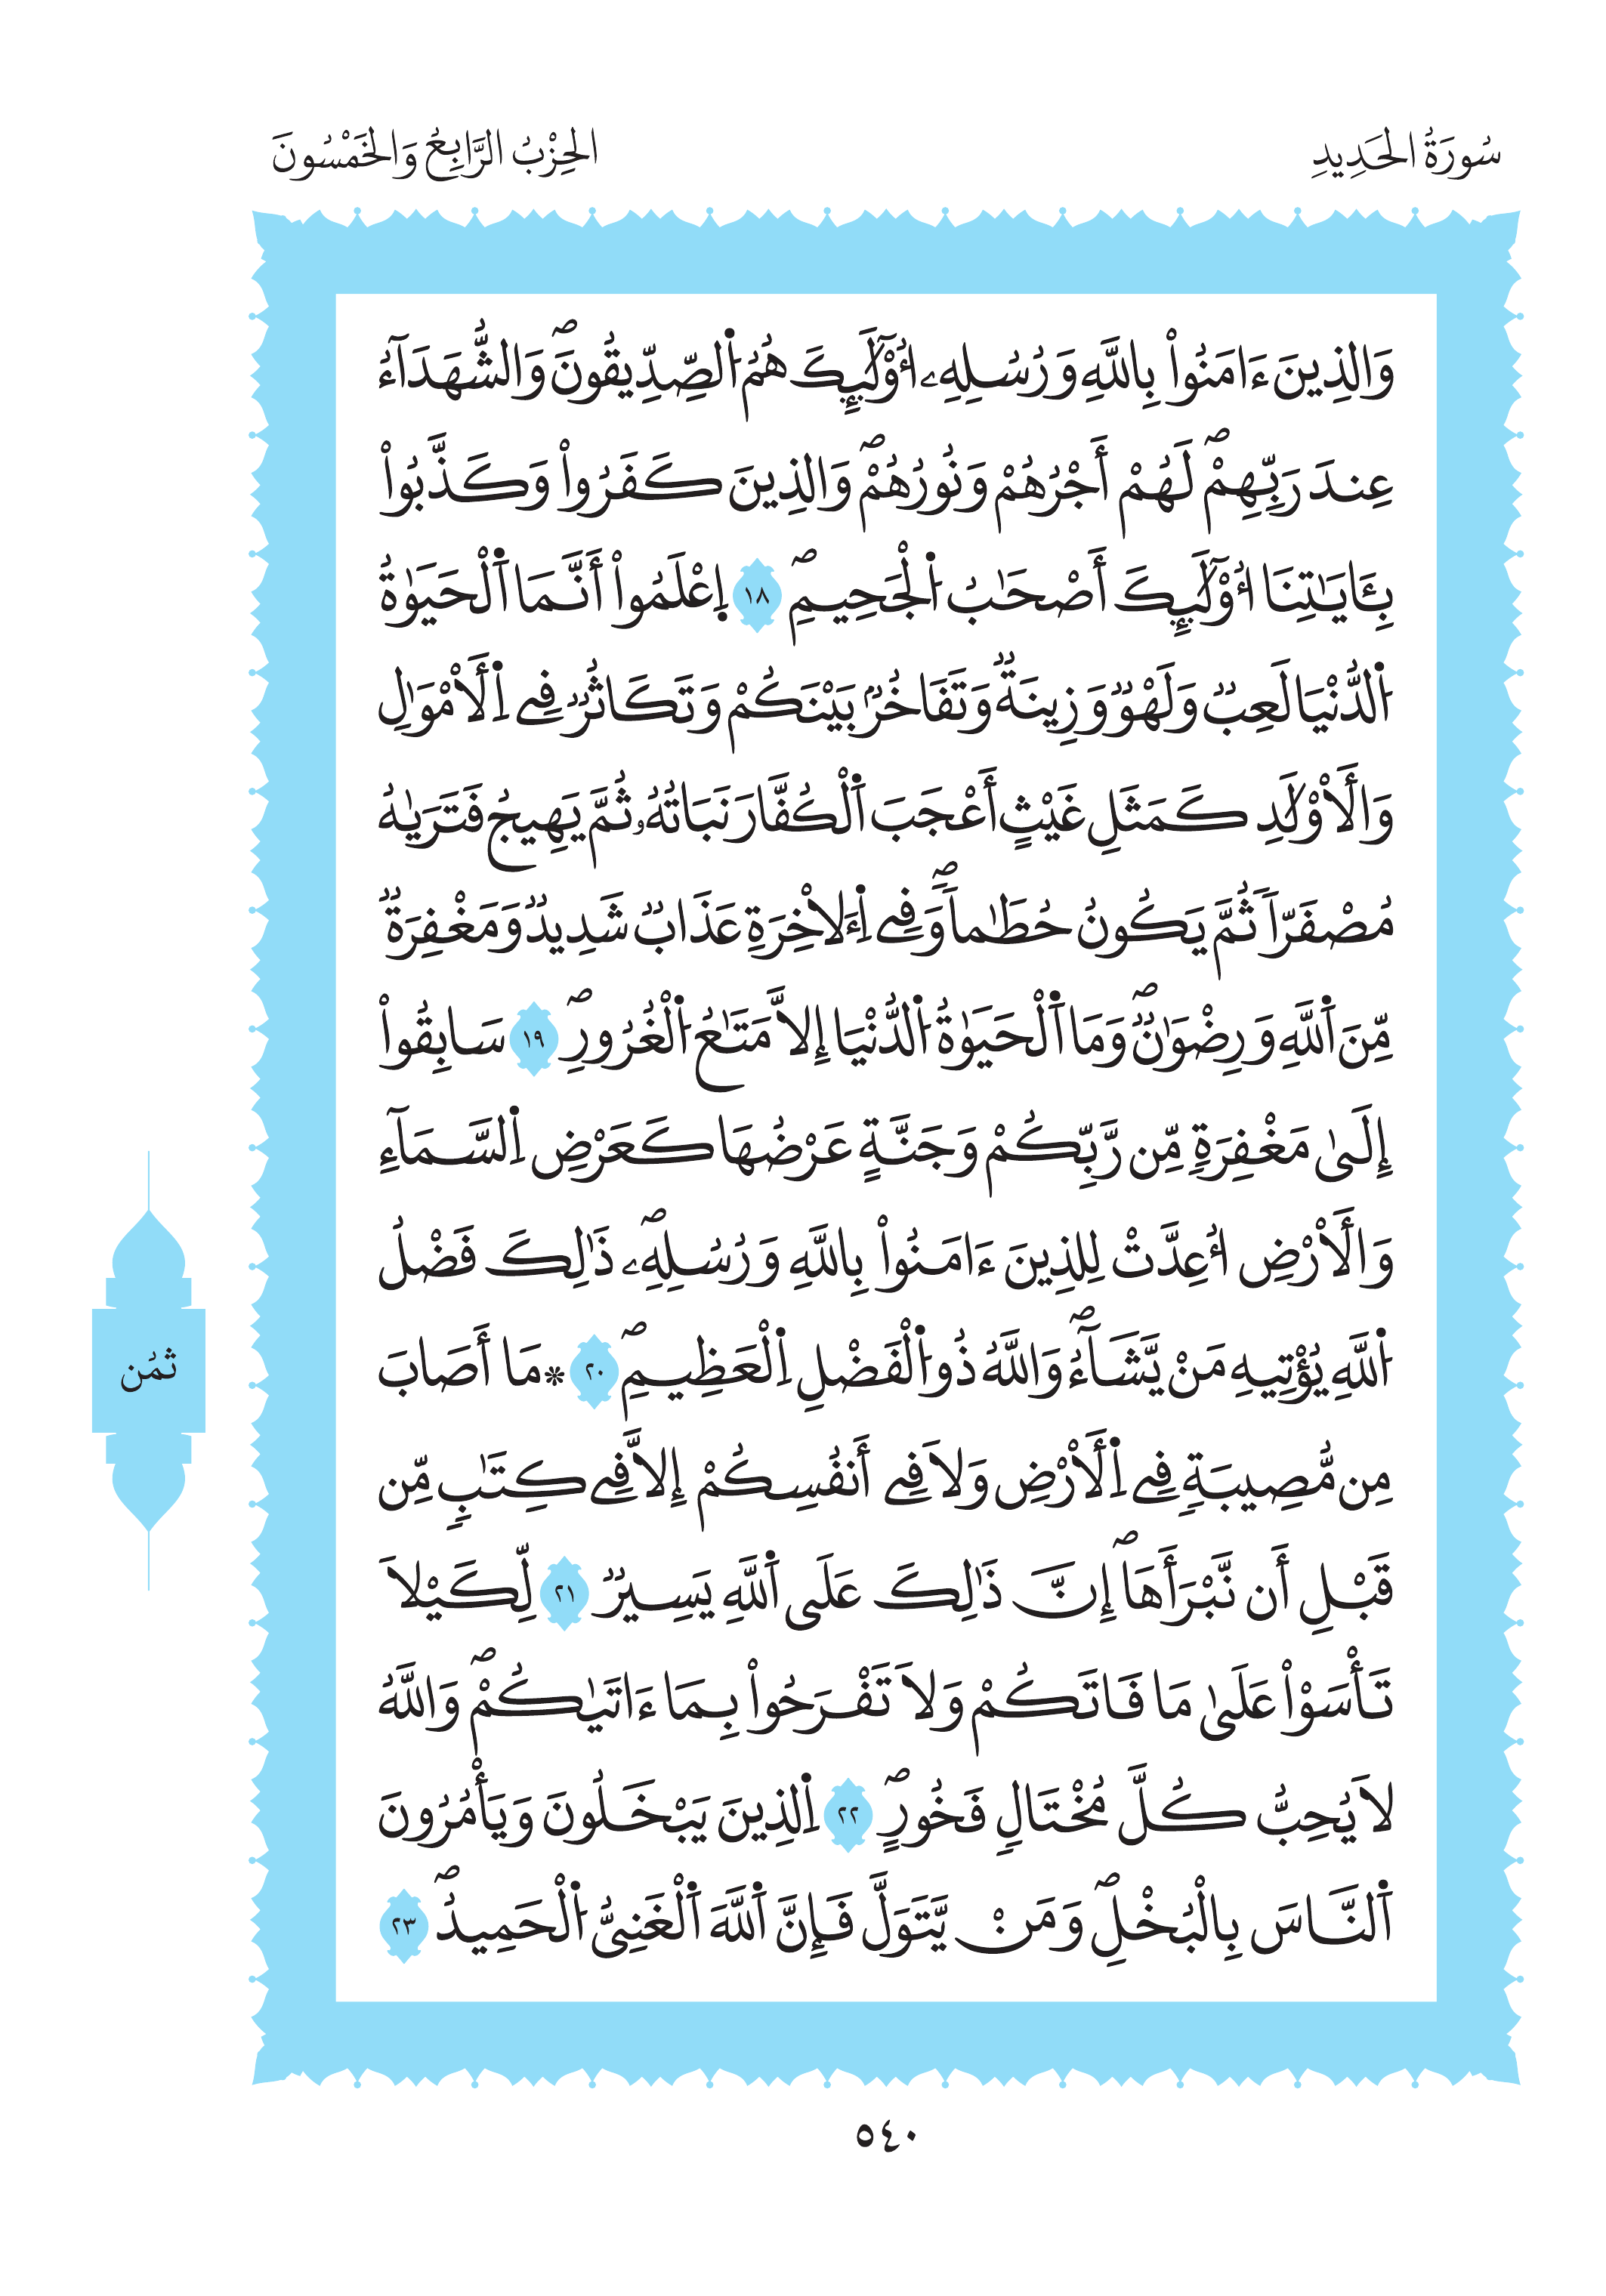 سُورَةُ الْحَدِيدِ
الْحِزْبُ الرَّابِعُ وَالْخَمْسُونَ
وَالذِينَ ءَامَنُواْ بِاللَّهِ وَرُسُلِهِۦ أُوْلَٰٓئِكَ هُمُ اُ۬لصِّدِّيقُونَۖ وَالشُّهَدَآءُ
عِندَ رَبِّهِمْۖ لَهُمْ أَجْرُهُمْ وَنُورُهُمْۖ وَالذِينَ كَفَرُواْ وَكَذَّبُواْ
بِـَٔايَٰتِنَا أُوْلَٰٓئِكَ أَصْحَٰبُ اُ۬لْجَحِيمِۖ ١٨ اِعْلَمُواْ أَنَّمَا اَ۬لْحَيَوٰةُ
اُ۬لدُّنْيَا لَعِبٞ وَلَهْوٞ وَزِينَةٞ وَتَفَاخُرُۢ بَيْنَكُمْ وَتَكَاثُرٞ فِے اِ۬لَامْوَٰلِ
وَالَاوْلَٰدِ كَمَثَلِ غَيْثٍ أَعْجَبَ اَ۬لْكُفَّارَ نَبَاتُهُۥ ثُمَّ يَهِيجُ فَتَرَيٰهُ
مُصْفَرّاٗ ثُمَّ يَكُونُ حُطَٰماٗۖ وَفِے اِ۬لَاخِرَةِ عَذَابٞ شَدِيدٞ وَمَغْفِرَةٞ
مِّنَ اَ۬للَّهِ وَرِضْوَٰنٞۖ وَمَا اَ۬لْحَيَوٰةُ اُ۬لدُّنْيَا إِلَّا مَتَٰعُ اُ۬لْغُرُورِۖ ١٩ سَابِقُواْ
إِلَىٰ مَغْفِرَةٖ مِّن رَّبِّكُمْ وَجَنَّةٍ عَرْضُهَا كَعَرْضِ اِ۬لسَّمَآءِ
وَالَارْضِ أُعِدَّتْ لِلذِينَ ءَامَنُواْ بِاللَّهِ وَرُسُلِهِۦۖ ذَٰلِكَ فَضْلُ
اُ۬للَّهِ يُؤْتِيهِ مَنْ يَّشَآءُۖ وَاللَّهُ ذُو اُ۬لْفَضْلِ اِ۬لْعَظِيمِۖ ٢٠ ۞ مَا أَصَابَ
مِن مُّصِيبَةٖ فِے اِ۬لَارْضِ وَلَا فِے أَنفُسِكُمْ إِلَّا فِے كِتَٰبٖ مِّن
قَبْلِ أَن نَّبْرَأَهَاۖ إِنَّ ذَٰلِكَ عَلَى اَ۬للَّهِ يَسِيرٞ ٢١ لِّكَيْلَا
تَأْسَوْاْ عَلَىٰ مَا فَاتَكُمْ وَلَا تَفْرَحُواْ بِمَا ءَاتَيٰكُمْۖ وَاللَّهُ
لَا يُحِبُّ كُلَّ مُخْتَالٖ فَخُورٍۖ ٢٢ اِ۬لذِينَ يَبْخَلُونَ وَيَأْمُرُونَ
اَ۬لنَّاسَ بِالْبُخْلِۖ وَمَنْ يَّتَوَلَّ فَإِنَّ اَ۬للَّهَ اَ۬لْغَنِىُّ اُ۬لْحَمِيدُۖ ٢٣
ثمُن
٥٤٠